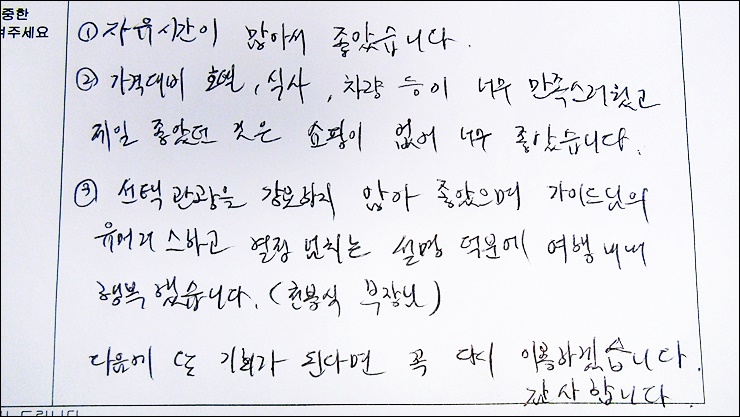 중한
려주세요
① 자유시간이 많아서 좋았습니다.
② 가격대비 호텔, 식사, 차량 등이 너무 만족스러웠고
제일 좋았던 것은 쇼핑이 없어 너무 좋았습니다.
③ 선택관광을 강요하지 않아 좋았으며 가이드님의
유머러스하고 열정 넘치는 설명 덕분에 여행 내내
행복했습니다. (천봉식 부장님)
다음에 또 기회가 된다면 꼭 다시 이용하겠습니다.
감사합니다.